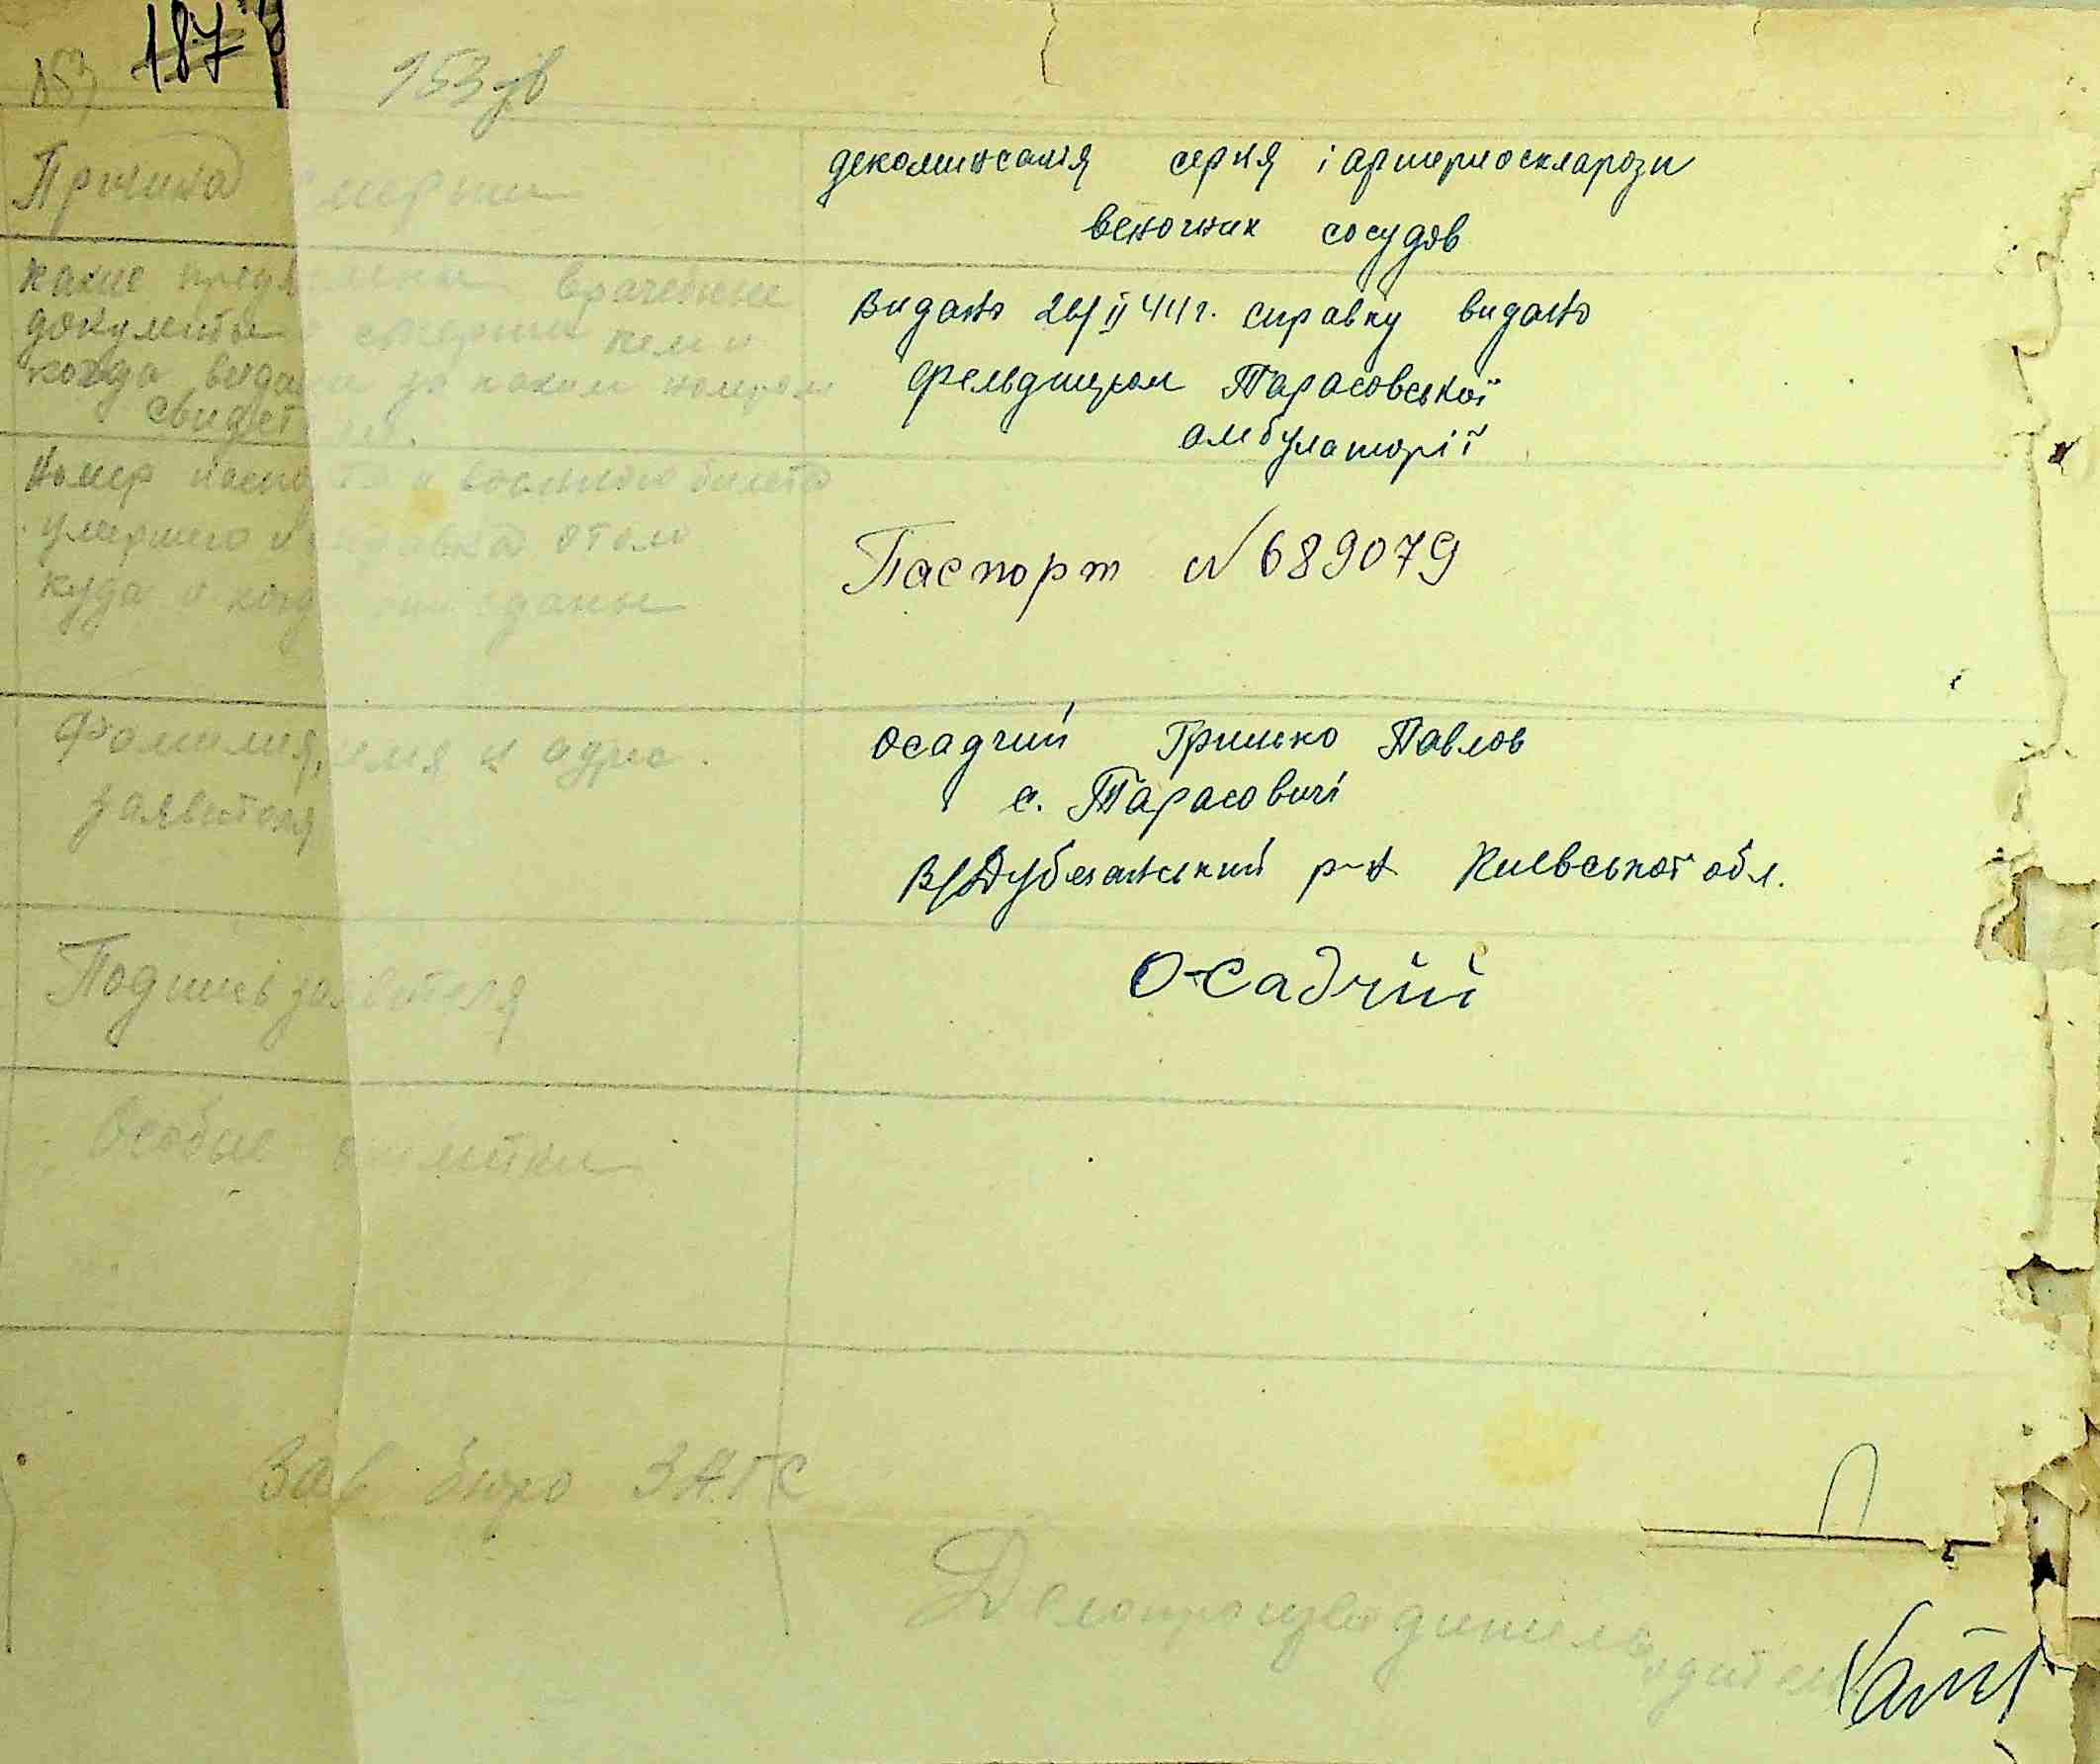 187
953 зв
Причина смерти
декоминсація серця і артериосклрози
веночних сосудов
какие предъявлены врачебные
документы о смерти кем и
когда выданы за каким номером
свидет
Видано 26/ІІ 44 г. справку видано
фельдшером Тарасовської
амбулаторії
Номер паспорта и военного билета
умершего и справка о том
куда и когда они сданы
Паспорт №689079
Фамилия, имя и адрес.
заявителя
Осадчий Гринько Павлов
с. Тарасовичі
В/Дубечанський р-н Київської обл.
Подпись заявителя
Осадчий
Особые отметки
Зав бюро ЗАГС
Делопроизводитель